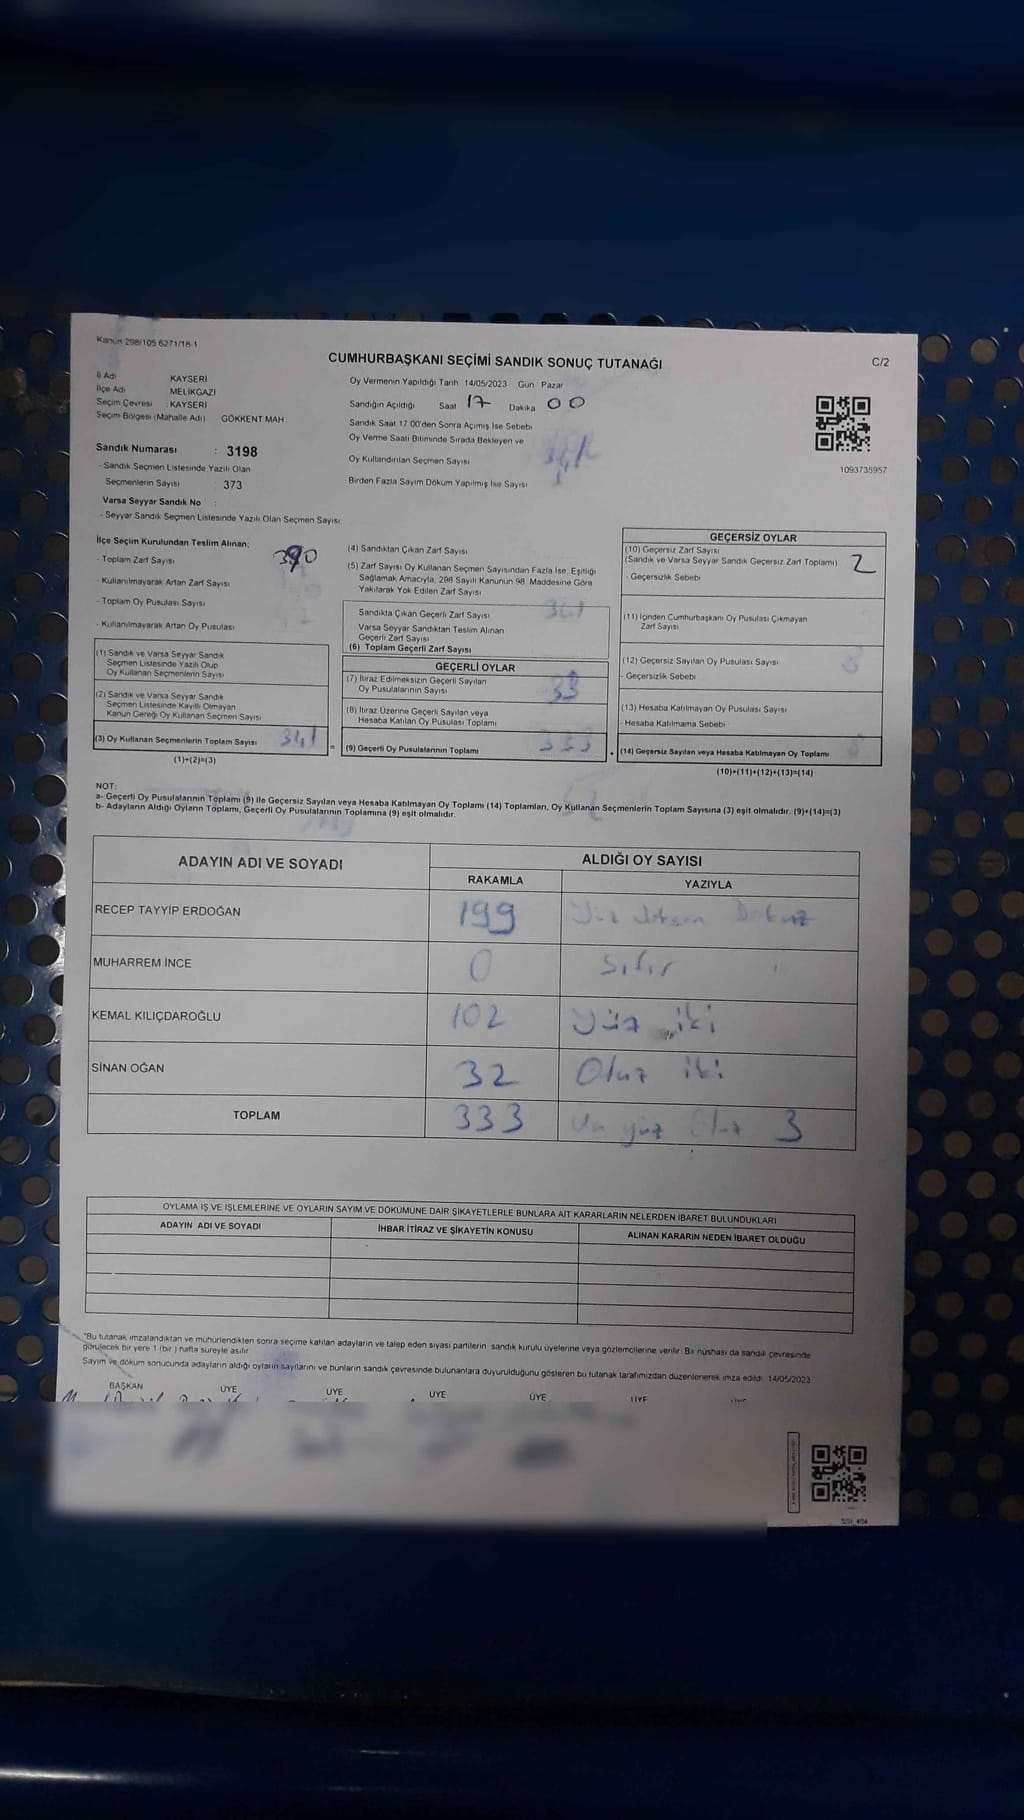 Kanun 298/105 6271/18-1
CUMHURBAŞKANI SEÇİMİ SANDIK SONUÇ TUTANAĞI
C/2
İl Adı KAYSERİ
İlçe Adı MELİKGAZİ
Seçim Çevresi : KAYSERİ
Seçim Bölgesi (Mahalle Adı) GÖKKENT MAH
Oy Vermenin Yapıldığı Tarih 14/05/2023 Gün Pazar
Sandığın Açıldığı Saat 17 Dakika 00
Sandık Saat 17.00'den Sonra Açımış İse Sebebi
Oy Verme Saati Bitiminde Sırada Bekleyen ve
Oy Kullandırılan Seçmen Sayısı
Birden Fazla Sayım Döküm Yapılmış İse Sayısı
1093735957
Sandık Numarası : 3198
- Sandık Seçmen Listesinde Yazılı Olan
Seçmenlerin Sayısı : 373
Varsa Seyyar Sandık No :
- Seyyar Sandık Seçmen Listesinde Yazılı Olan Seçmen Sayısı:
İlçe Seçim Kurulundan Teslim Alınan;
- Toplam Zarf Sayısı
- Kullanılmayarak Artan Zarf Sayısı
- Toplam Oy Pusulası Sayısı
- Kullanılmayarak Artan Oy Pusulası
(1) Sandık ve Varsa Seyyar Sandık
Seçmen Listesinde Yazılı Olup
Oy Kullanan Seçmenlerin Sayısı
(2) Sandık ve Varsa Seyyar Sandık
Seçmen Listesinde Kayıtlı Olmayan
Kanun Gereği Oy Kullanan Seçmen Sayısı
(3) Oy Kullanan Seçmenlerin Toplam Sayısı 341
(1)+(2)=(3)
(4) Sandıktan Çıkan Zarf Sayısı
(5) Zarf Sayısı Oy Kullanan Seçmen Sayısından Fazla İse, Eşitliği
Sağlamak Amacıyla, 298 Sayılı Kanunun 98. Maddesine Göre
Yakılarak Yok Edilen Zarf Sayısı
Sandıkta Çıkan Geçerli Zarf Sayısı 341
Varsa Seyyar Sandıktan Teslim Alınan
Geçerli Zarf Sayısı
(6) Toplam Geçerli Zarf Sayısı
GEÇERLİ OYLAR
(7) İtiraz Edilmeksizin Geçerli Sayılan
Oy Pusulalarının Sayısı
(8) İtiraz Üzerine Geçerli Sayılan veya
Hesaba Katılan Oy Pusulası Toplamı
(9) Geçerli Oy Pusulalarının Toplamı 333
GEÇERSİZ OYLAR
(10) Geçersiz Zarf Sayısı
(Sandık ve Varsa Seyyar Sandık Geçersiz Zarf Toplamı) 2
- Geçersizlik Sebebi
(11) İçinden Cumhurbaşkanı Oy Pusulası Çıkmayan
Zarf Sayısı
(12) Geçersiz Sayılan Oy Pusulası Sayısı
- Geçersizlik Sebebi
(13) Hesaba Katılmayan Oy Pusulası Sayısı
- Hesaba Katılmama Sebebi
(14) Geçersiz Sayılan veya Hesaba Katılmayan Oy Toplamı
(10)+(11)+(12)+(13)=(14)
NOT:
a- Geçerli Oy Pusulalarının Toplamı (9) ile Geçersiz Sayılan veya Hesaba Katılmayan Oy Toplamı (14) Toplamları, Oy Kullanan Seçmenlerin Toplam Sayısına (3) eşit olmalıdır. (9)+(14)=(3)
b- Adayların Aldığı Oyların Toplamı, Geçerli Oy Pusulalarının Toplamına (9) eşit olmalıdır.
ADAYIN ADI VE SOYADI ALDIĞI OY SAYISI
RAKAMLA YAZIYLA
RECEP TAYYİP ERDOĞAN 199 Yüz Doksan Dokuz
MUHARREM İNCE 0 Sıfır
KEMAL KILIÇDAROĞLU 102 Yüz iki
SİNAN OĞAN 32 Otuz iki
TOPLAM 333 yüz Otuz 3
OYLAMA İŞ VE İŞLEMLERİNE VE OYLARIN SAYIM VE DÖKÜMÜNE DAİR ŞİKAYETLERLE BUNLARA AİT KARARLARIN NELERDEN İBARET BULUNDUKLARI
ADAYIN ADI VE SOYADI İHBAR İTİRAZ VE ŞİKAYETİN KONUSU ALINAN KARARIN NEDEN İBARET OLDUĞU
*Bu tutanak imzalandıktan ve mühürlendikten sonra seçime katılan adayların ve talep eden siyasi partilerin sandık kurulu üyelerine veya gözlemcilerine verilir. Bir nüshası da sandık çevresinde
görülecek bir yere 1 (bir ) hafta süreyle asılır.
Sayım ve döküm sonucunda adayların aldığı oyların sayılarını ve bunların sandık çevresinde bulunanlara duyurulduğunu gösteren bu tutanak tarafımızdan düzenlenerek imza edildi. 14/05/2023
BAŞKAN ÜYE ÜYE ÜYE ÜYE ÜYE